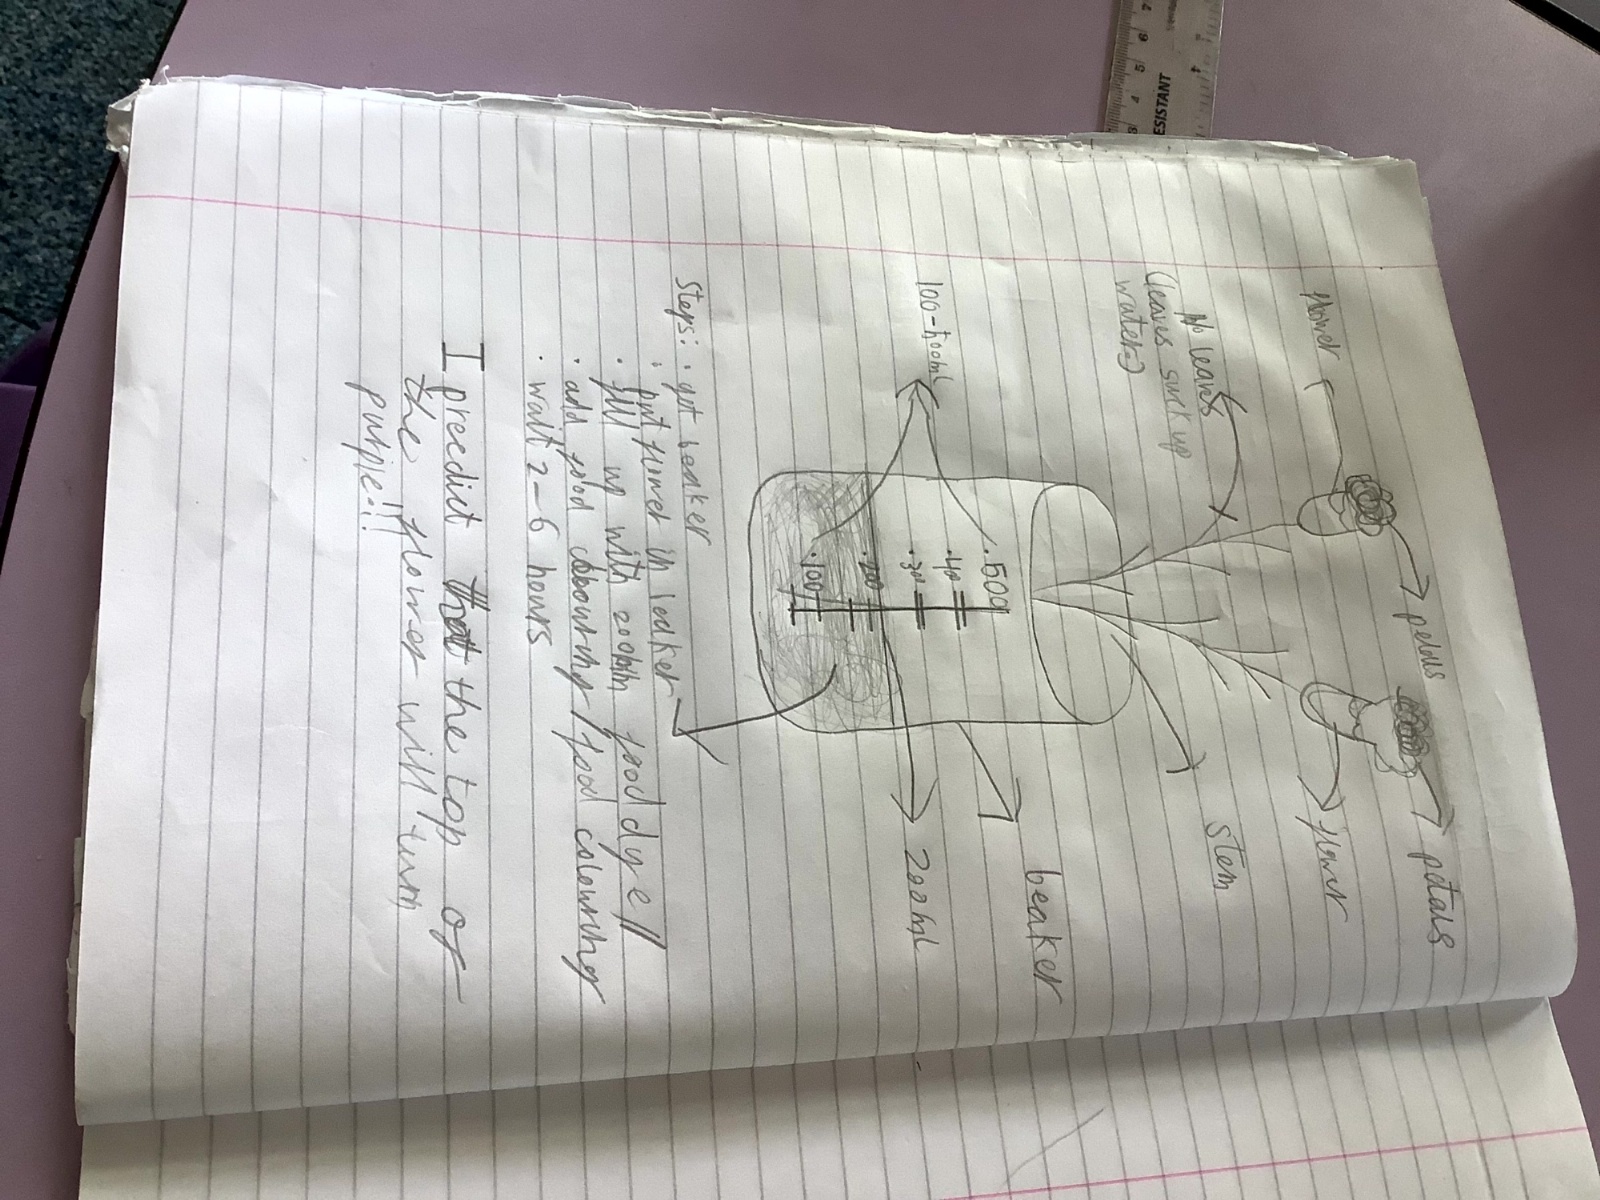 petals
petals
flower
flower
No leaves
(leaves suck up
water)
stem
beaker
100-500ml
200ml
.500
.400
.300
.200
.100
Steps: · get beaker
· put flower in beaker
· fill up with 200ml food dye //
· add food colouring / food colouring
· wait 2-6 hours
I predict that the top of
the flower will turn
purple!!
ESISTANT
3 4 5 6 7